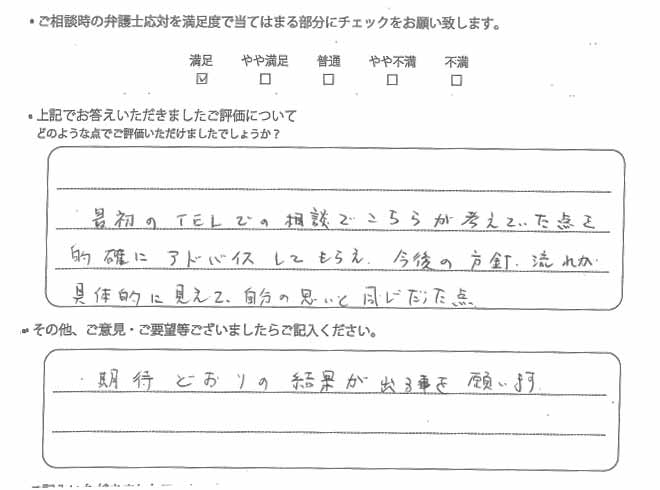 ・ご相談時の弁護士応対を満足度で当てはまる部分にチェックをお願い致します。
満足 やや満足 普通 やや不満 不満
☑ □ □ □ □
・上記でお答えいただきましたご評価について
どのような点でご評価いただけましたでしょうか？
最初のTELでの相談でこちらが考えていた点を
的確にアドバイスしてもらえ、今後の方針、流れが
具体的に見えて、自分の思いと同じだった点
・その他、ご意見・ご要望等ございましたらご記入ください。
・期待どおりの結果が出る事を願います。